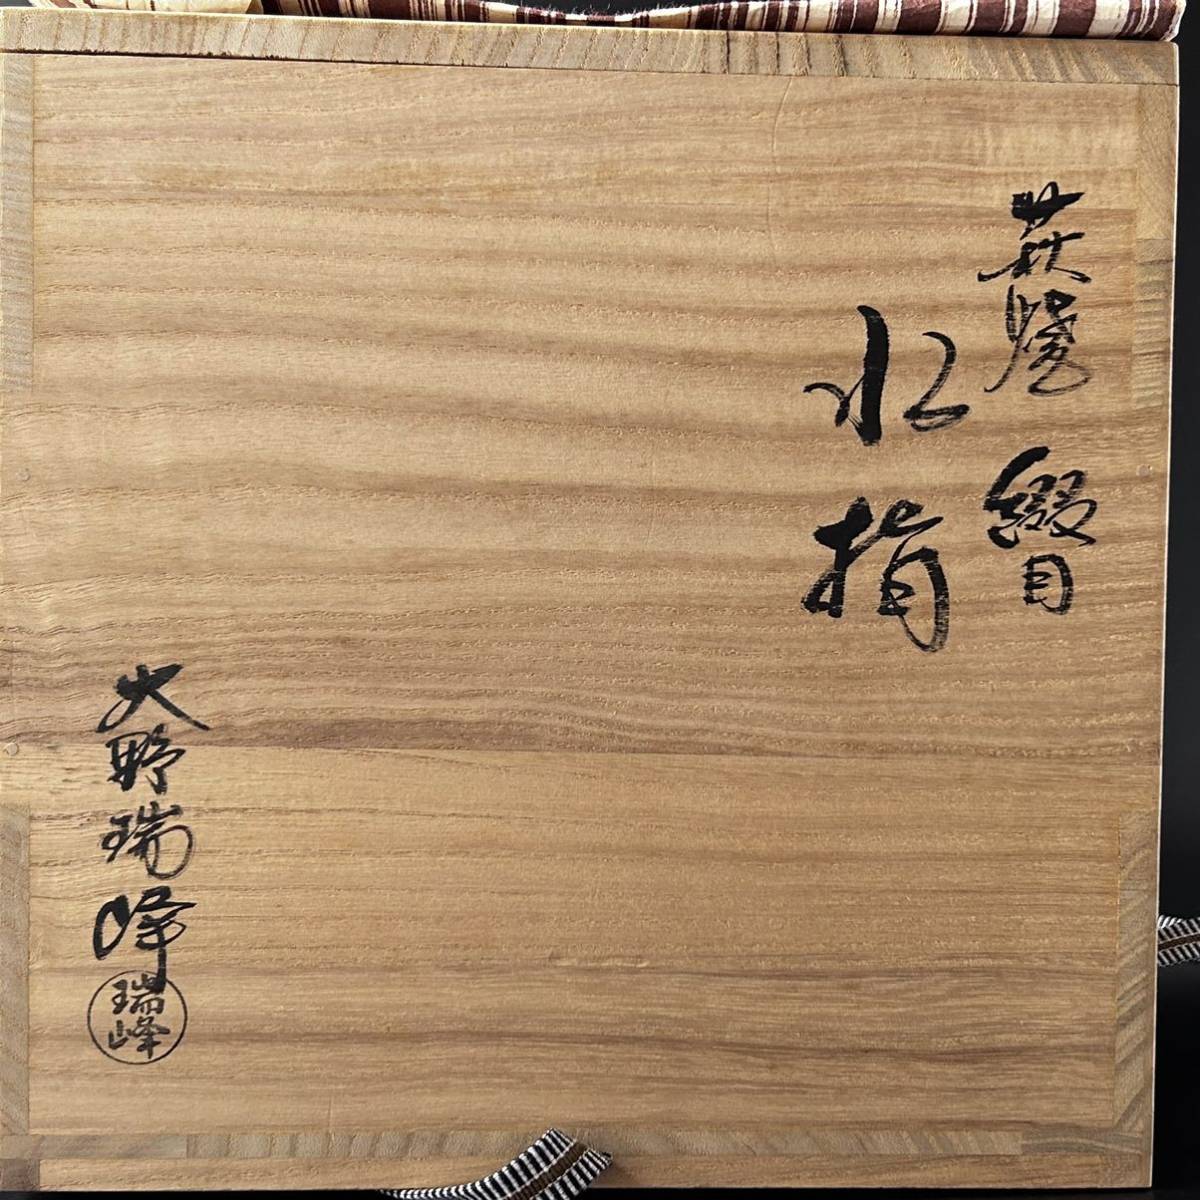 萩焼 綴目
水指
大野瑞峰
瑞峰